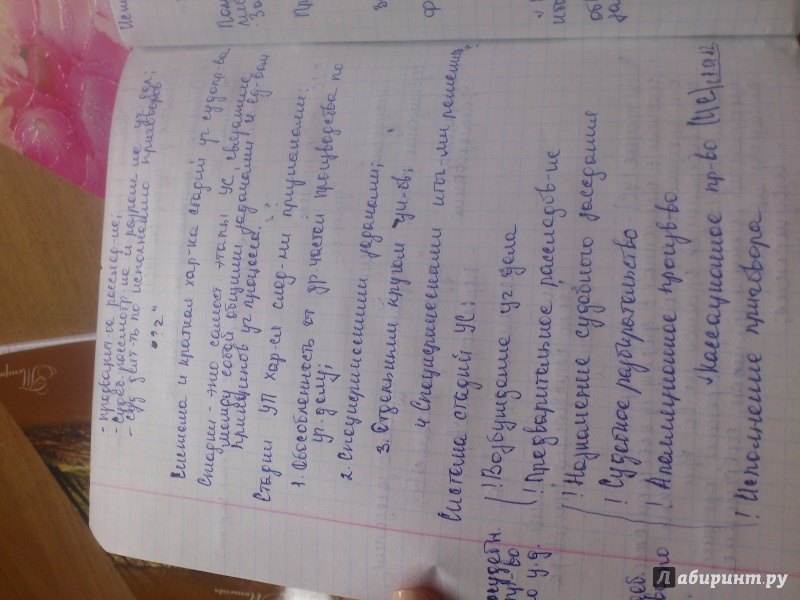 - предварит-ое расслед-ие;
- судеб. рассмотр-ие и разреш-ие уг. дел;
- суд. деят-ть по исполнению приговоров;
"?2"
Система и краткая хар-ка стадий уг. судопр-ва
Стадии - это самост. этапы УС, связанные
между собой общими задачами и ед-вом
принципов уг. процесса.
Стадии УП хар-ся след-ми признаками:
1. Обособленность от др. частей производства по
уг. делу;
2. Специфическими задачами;
3. Отдельным кругом уч-ов;
4. Специфическими итог-ми решениями.
Система стадий УС:
! Возбуждение уг. дела
! Предварительное расследов-ие
! Назначение судебного заседания
! Судебное разбирательство
! Апелляционное произв-во
Кассационное пр-во
! Исполнение приговора
досудебн.
пр-во
у.д.
Лабиринт.ру